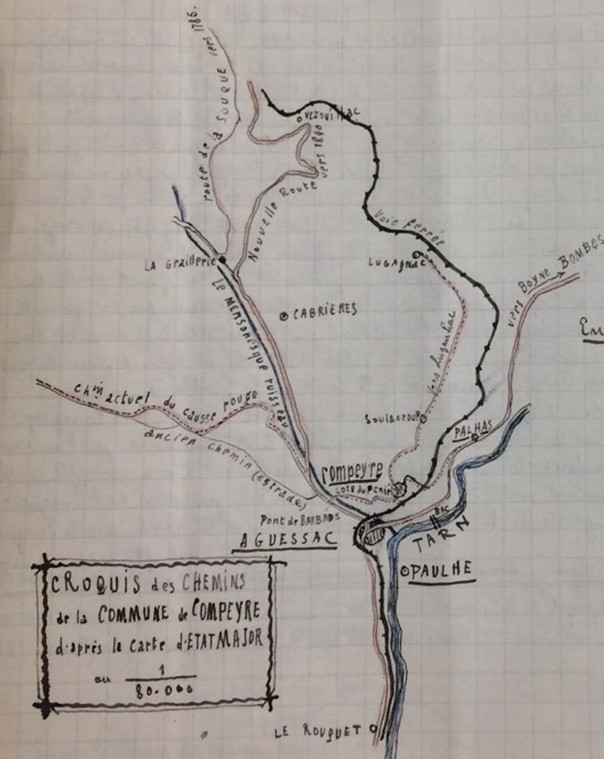 route de la SOUQUE vers 1785.
VEZOUILLAC
Nouvelle Route vers 1840
Voie ferrée
LUGAGNAC
vers BOYNE BOMBES
LA Graillerie
CABRIERES
Le MENSONESQUE ruisseau
vers Luganhac
chin actuel du causse rouge
ancien chemin (estrade)
Soulacroup
PALHAS
COMPEYRE
Pont de BARBADS
BAC
TARN
AGUESSAC
PAULHE
CROQUIS des CHEMINS
de la COMMUNE de COMPEYRE
d'après la Carte d'ETAT MAJOR
au 1
80.000
LE ROUQUET